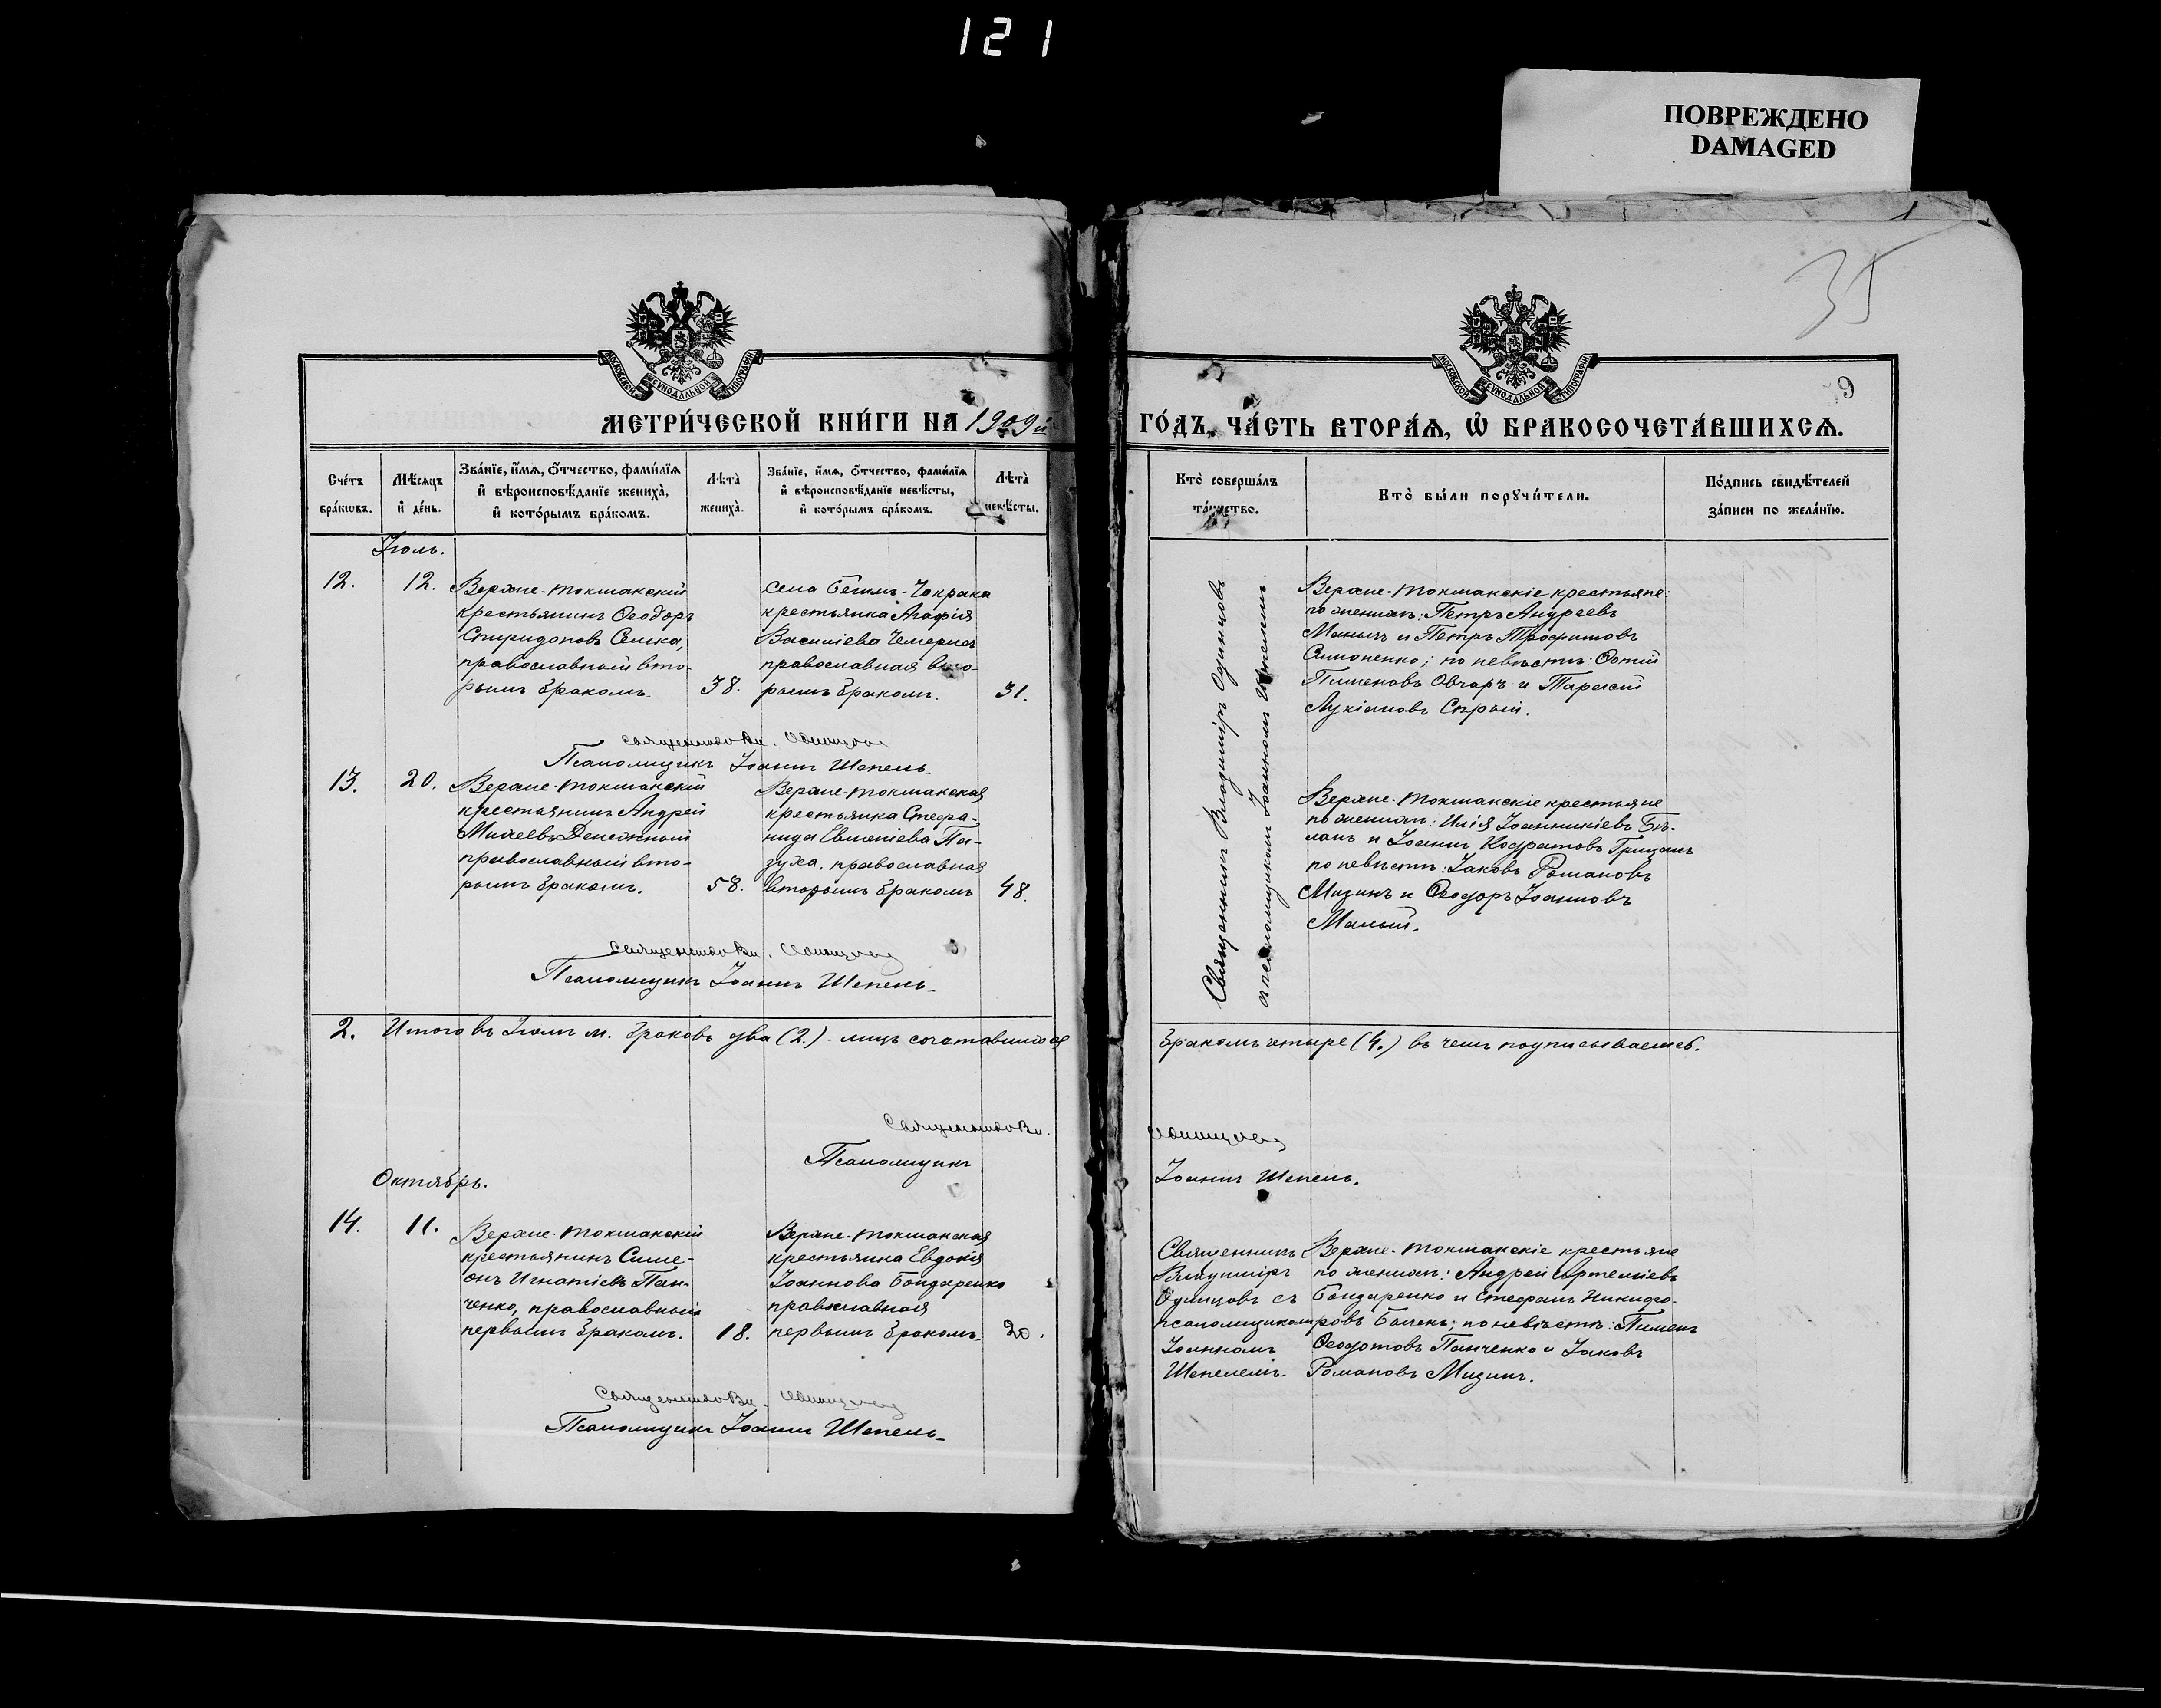 121
ПОВРЕЖДЕНО
DAMAGED
35
9
МОСКОВСКОЙ СѴНОДАЛЬНОЙ ТИПОГРАФІИ
МОСКОВСКОЙ СѴНОДАЛЬНОЙ ТИПОГРАФІИ
МЕТРИ́ЧЕСКОЙ КНИ́ГИ НА 1909й
ГО́ДЪ, ЧА́СТЬ ВТОРА́Ѧ, Ѡ҆ БРАКОСОЧЕТА́ВШИХСѦ.
Сче́тъ
бра́кѡвъ.
Мѣ́сѧцъ
и҆ де́нь.
Зва́нїе, и҆́мѧ, ѻ҆́тчество, фами́лїѧ
и҆ вѣроисповѣ́данїе жениха̀,
и҆ кото́рымъ бра́комъ.
Лѣ́та̀
жениха̀.
Зва́нїе, и҆́мѧ, ѻ҆́тчество, фами́лїѧ
и҆ вѣроисповѣ́данїе невѣ́сты,
и҆ кото́рымъ бра́комъ.
Лѣ́та̀
невѣ́сты.
Кто̀ соверша́лъ
та́инство.
Кто̀ бы́ли порꙋчи́тели.
По́дпись свидѣ́телей
за́писи по жела́нїю.
Іюль.
12.
12.
Верхне-Токмакскій
крестьянинъ Ѳеодоръ
Спиридоновъ Семка,
православный вто-
рымъ бракомъ.
38.
села Бегим-Чокрака
крестьянка Агафія
Василіева
православная вто-
рымъ бракомъ.
31.
Священникъ Владиміръ Одинцовъ
съ псаломщикомъ Іоанномъ Шепелемъ.
Верхне-Токмакскіе крестьяне:
по женихѣ: Петръ Андреевъ
и Петръ Трофимовъ
Симоненко; по невѣстѣ: Фотій
Пименовъ Овчаръ и Тарасій
Лукіановъ Сѣрый.
Священникъ Вл. Одинцовъ
Псаломщикъ Іоаннъ Шепель.
13.
20.
Верхне-Токмакскій
крестьянинъ Андрей
Михеевъ Денежный
православный вто-
рымъ бракомъ.
58.
Верхне-Токмакская
крестьянка Стефа-
нида Евменіева Па-
зуха, православная
вторымъ бракомъ
48.
Верхне-Токмакскіе крестьяне
по женихѣ: Илія Іоанникіевъ Бѣ-
ланъ и Іоаннъ Кодратовъ Грицанъ
по невѣстѣ: Іаковъ Романовъ
Мизинъ и Ѳеодоръ Іоанновъ
Малый.
Священникъ Вл. Одинцовъ
Псаломщикъ Іоаннъ Шепель.
2. Итого въ Іюлѣ м. браковъ два (2.) лицъ сочетавшихся
бракомъ четыре (4.) въ чемъ подписываемся.
Священникъ Вл. Одинцовъ
Псаломщикъ Іоаннъ Шепель.
Октябрь.
14.
11.
Верхне-Токмакскій
крестьянинъ Симе-
онъ Игнатіевъ Пан-
ченко, православный
первымъ бракомъ.
18.
Верхне-Токмакская
крестьянка Евдокія
Іоаннова Бондаренко
православная
первымъ бракомъ.
20.
Священникъ
Владиміръ
Одинцовъ съ
псаломщикомъ
Іоанномъ
Шепелемъ.
Верхне-Токмакскіе крестьяне
по женихѣ: Андрей Артеміевъ
Бондаренко и Стефанъ Никифо-
ровъ; по невѣстѣ: Пименъ
Ѳеодотовъ Панченко и Іаковъ
Романовъ Мизинъ.
Священникъ Вл. Одинцовъ
Псаломщикъ Іоаннъ Шепель.